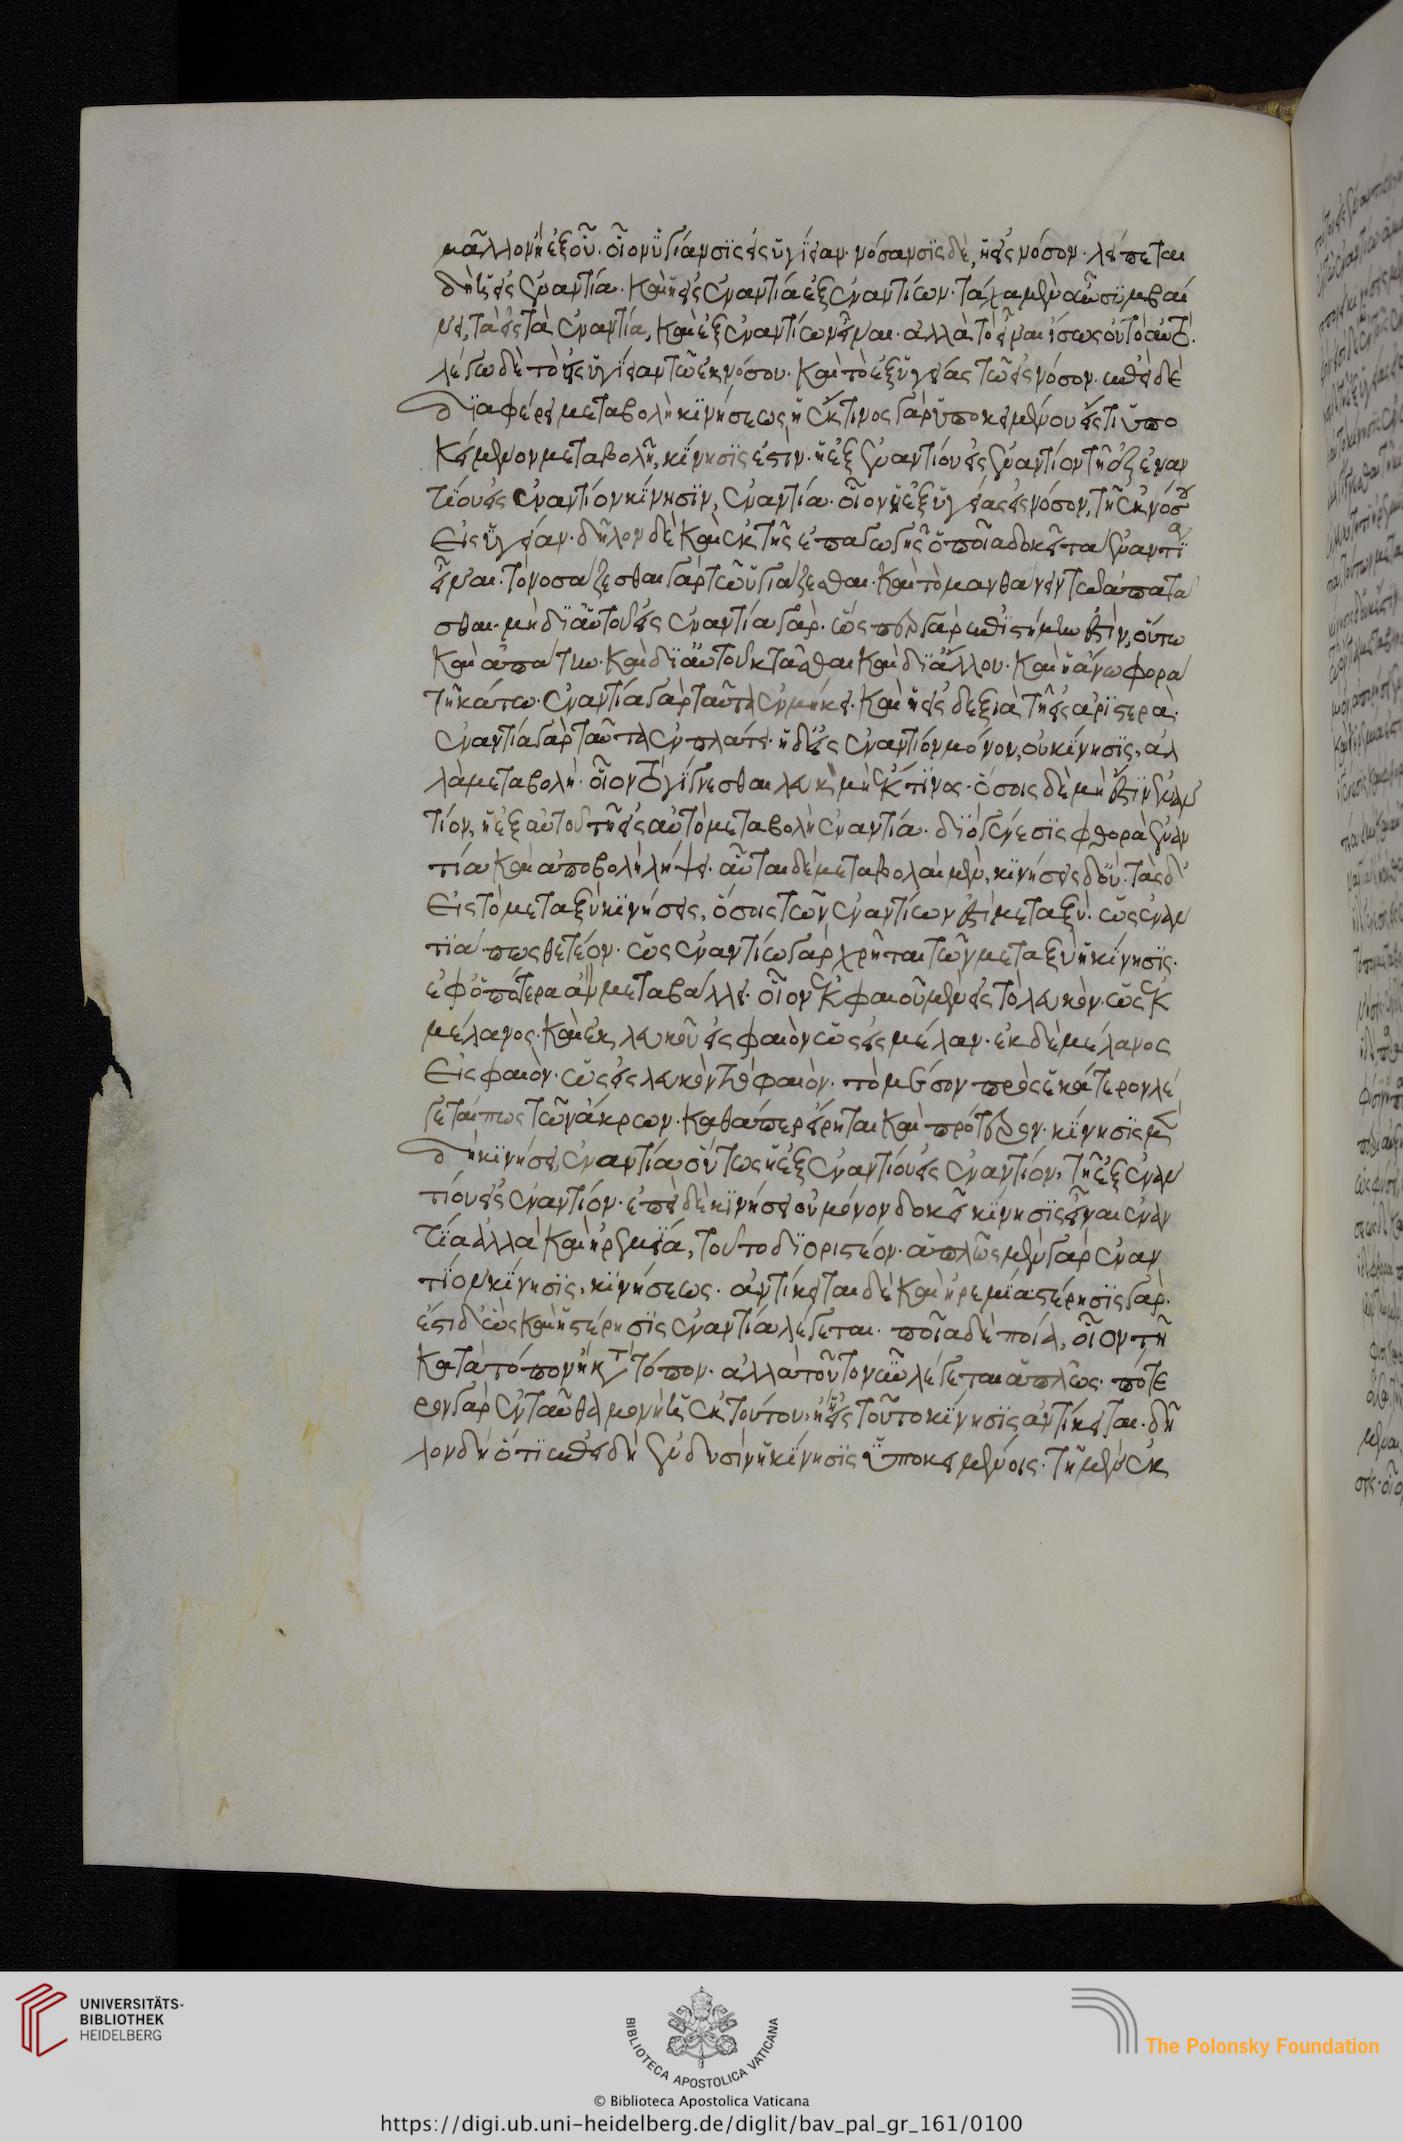 μᾶλλον ἢ ἐξ οὗ. οἷον ὑγίανσις ἡ εἰς ὑγίειαν. νόσανσις δὲ, ἡ εἰς νόσον. λείπεται
δὴ ἡ εἰς ἐναντία. καὶ ἡ εἰς ἐναντία ἐξ ἐναντίων. τάχα μὲν οὖν συμβαί
νει, τὰς εἰς τὰ ἐναντία, καὶ ἐξ ἐναντίων εἶναι. ἀλλὰ τὸ εἶναι ἴσως οὐ τὸ αὐτό.
λέγω δὲ τὸ εἰς ὑγίειαν τῶ ἐκ νόσου. καὶ τὸ ἐξ ὑγείας τῶ εἰς νόσον. ἐπεὶ δὲ
διαφέρει μεταβολὴ κινήσεως, ἡ ἔκ τινος γὰρ ὑποκειμένου εἴς τι ὑπο
κείμενον μεταβολὴ, κίνησίς ἐστιν. ἡ ἐξ ἐναντίου εἰς ἐναντίον τῆ ἐξ ἐναν
τίου εἰς ἐναντίον κίνησιν, ἐναντία. οἷον ἡ ἐξ ὑγείας εἰς νόσον, τῆ ἐκ νόσου
εἰς ὑγείαν. δῆλον δὲ καὶ ἐκ τῆς ἐπαγωγῆς ὁποῖα δοκεῖ τὰ ἐναντία
εἶναι. τὸ νοσάζεσθαι γὰρ τῶ ὑγιάζεσθαι. καὶ τὸ μανθάνειν τῶ ἀπατᾶ
σθαι. μὴ δι αὑτοῦ εἰς ἐναντία γάρ. ὥσπερ γὰρ ἐπιστήμην ἐστὶν, οὕτω
καὶ ἀπάτην. καὶ δι αὑτοῦ κτᾶσθαι καὶ δι ἄλλου. καὶ ἡ ἄνω φορὰ
τῆ κάτω. ἐναντία γὰρ ταῦτα ἐν μήκει. καὶ ἡ εἰς δεξιὰ τῆ εἰς ἀριστερά.
ἐναντία γὰρ ταῦτα ἐν πλάτει. ἡ δ εἰς ἐναντίον μόνον, οὐ κίνησις, ἀλ
λὰ μεταβολή. οἷον τὸ γίγνεσθαι λευκὸν μὴ ἔκ τινος. ὅσοις δὲ μὴ ἔστιν ἐναν
τίον, ἡ ἐξ αὐτοῦ τῆ εἰς αὐτὸ μεταβολὴ ἐναντία. διὸ γένεσις φθορᾶ ἐναν
τία καὶ ἀποβολὴ λήψει. αὗται δὲ μεταβολαὶ μὲν, κινήσεις δ οὔ. τὰς δ
εἰς τὸ μεταξὺ κινήσεις, ὅσοις τῶν ἐναντίων ἐστὶ μεταξύ. ὡς εἰς ἐναν
τία πως θετέον. ὡς ἐναντίω γὰρ χρῆται τῶ μεταξὺ ἡ κίνησις.
ἐφ ὁπότερα ἂν μεταβάλλει. οἷον ἐκ φαιοῦ μὲν εἰς τὸ λευκὸν. ὡς ἐκ
μέλανος. καὶ ἐκ λευκοῦ εἰς φαιὸν ὡς εἰς μέλαν. ἐκ δὲ μέλανος
εἰς φαιὸν. ὡς εἰς λευκὸν τὸ φαιόν. τὸ μέσον πρὸς ἑκάτερον λέ
γεταί πως τῶν ἄκρων. καθάπερ εἴρηται καὶ πρότερον. κίνησις μὲν
δὴ κινήσει, ἐναντία οὕτως ἡ ἐξ ἐναντίου εἰς ἐναντίον, τῆ ἐξ ἐναν
τίου εἰς ἐναντίον. ἐπεὶ δὲ κινήσει οὐ μόνον δοκεῖ κίνησις εἶναι ἐναν
τία ἀλλὰ καὶ ἠρεμία, τοῦτο διοριστέον. ἁπλῶς μὲν γὰρ ἐναν
τίον κίνησις, κινήσεως. ἀντίκειται δὲ καὶ ἠρεμία. στέρησις γάρ.
ἔστι δ ὡς καὶ ἡ στέρησις ἐναντία λέγεται. ποῖα δὲ ποία, οἷον τῆ
κατὰ τόπον ἡ κατὰ τόπον. ἀλλὰ τοῦτο νῦν λέγεται ἁπλῶς. πότε
ρον γὰρ ἐνταῦθα μονῆ ἡ ἐκ τούτου, ἢ ἡ εἰς τοῦτο κίνησις ἀντίκειται. δῆ
λον δὴ ὅτι ἐπεὶ δὴ ἐν δυσὶν ἡ κίνησις ὑποκειμένοις. τῆ μὲν ἐκ
UNIVERSITÄTS-
BIBLIOTHEK
HEIDELBERG
BIBLIOTECA APOSTOLICA VATICANA
The Polonsky Foundation
© Biblioteca Apostolica Vaticana
https://digi.ub.uni-heidelberg.de/diglit/bav_pal_gr_161/0100